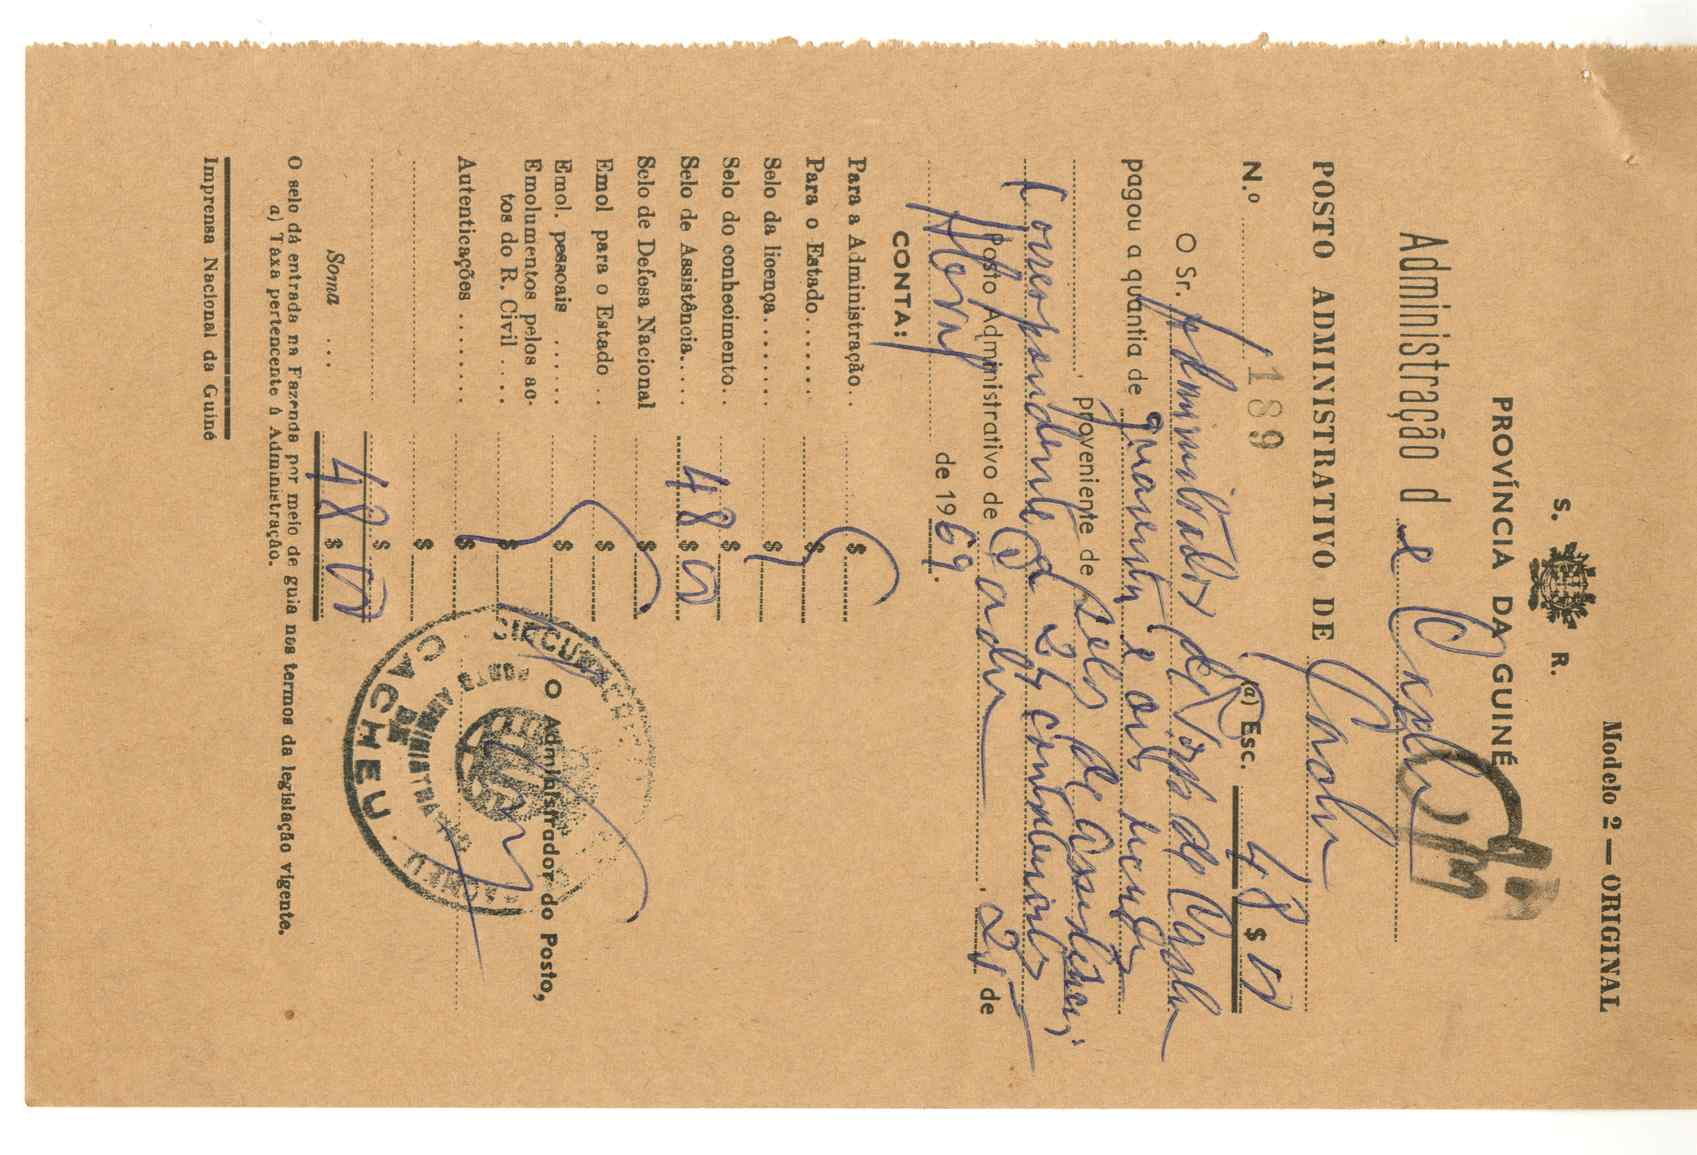 Modelo 2 — ORIGINAL
S. R.
PROVÍNCIA DA GUINÉ
Administração de Cacheu
POSTO ADMINISTRATIVO DE Cacheu
N.º 189 (a) Esc. 48$00
O Sr. Administrador de Posto de Cacheu
pagou a quantia de quarenta e oito escudos
, proveniente de selos de assistência
correspondente a 24 conhecimentos
Posto Administrativo de Cacheu, 25 de
Abril de 1969.
CONTA:
Para a Administração.. $
Para o Estado....... $
Selo da licença....... $
Selo do conhecimento.. $
Selo de Assistência.... 48$00
Selo de Defesa Nacional $
Emol para o Estado .. $
Emol. pessoais ...... $
Emolumentos pelos ac-
tos do R. Civil .... $
Autenticações ....... $
$
$
Soma ... 48$00
O Administrador do Posto,
CIRCUNSCRIÇÃO
CACHEU
POSTO ADMINISTRATIVO
CACHEU
O selo dá entrada na Fazenda por meio de guia nos termos da legislação vigente.
a) Taxa pertencente à Administração.
Imprensa Nacional da Guiné